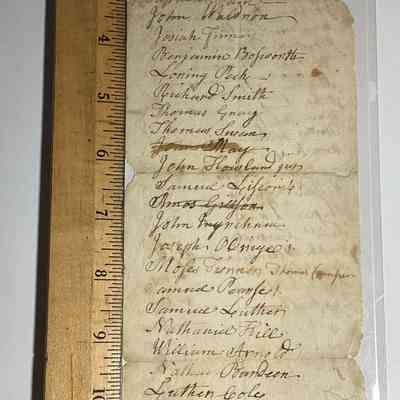 John Waldron
Josiah Finney
Benjamin Bosworth
Loring Peck
Richard Smith
Thomas Gray
Thomas Swan
May
John Howland jun
Samuel
Amos
John Ingraham
Joseph
Moses Thomas
Samuel Pearse
Samuel Luther
Nathaniel Hill
William Arnold
Nathan
Luther Cole
4
5
6
7
8
9
10